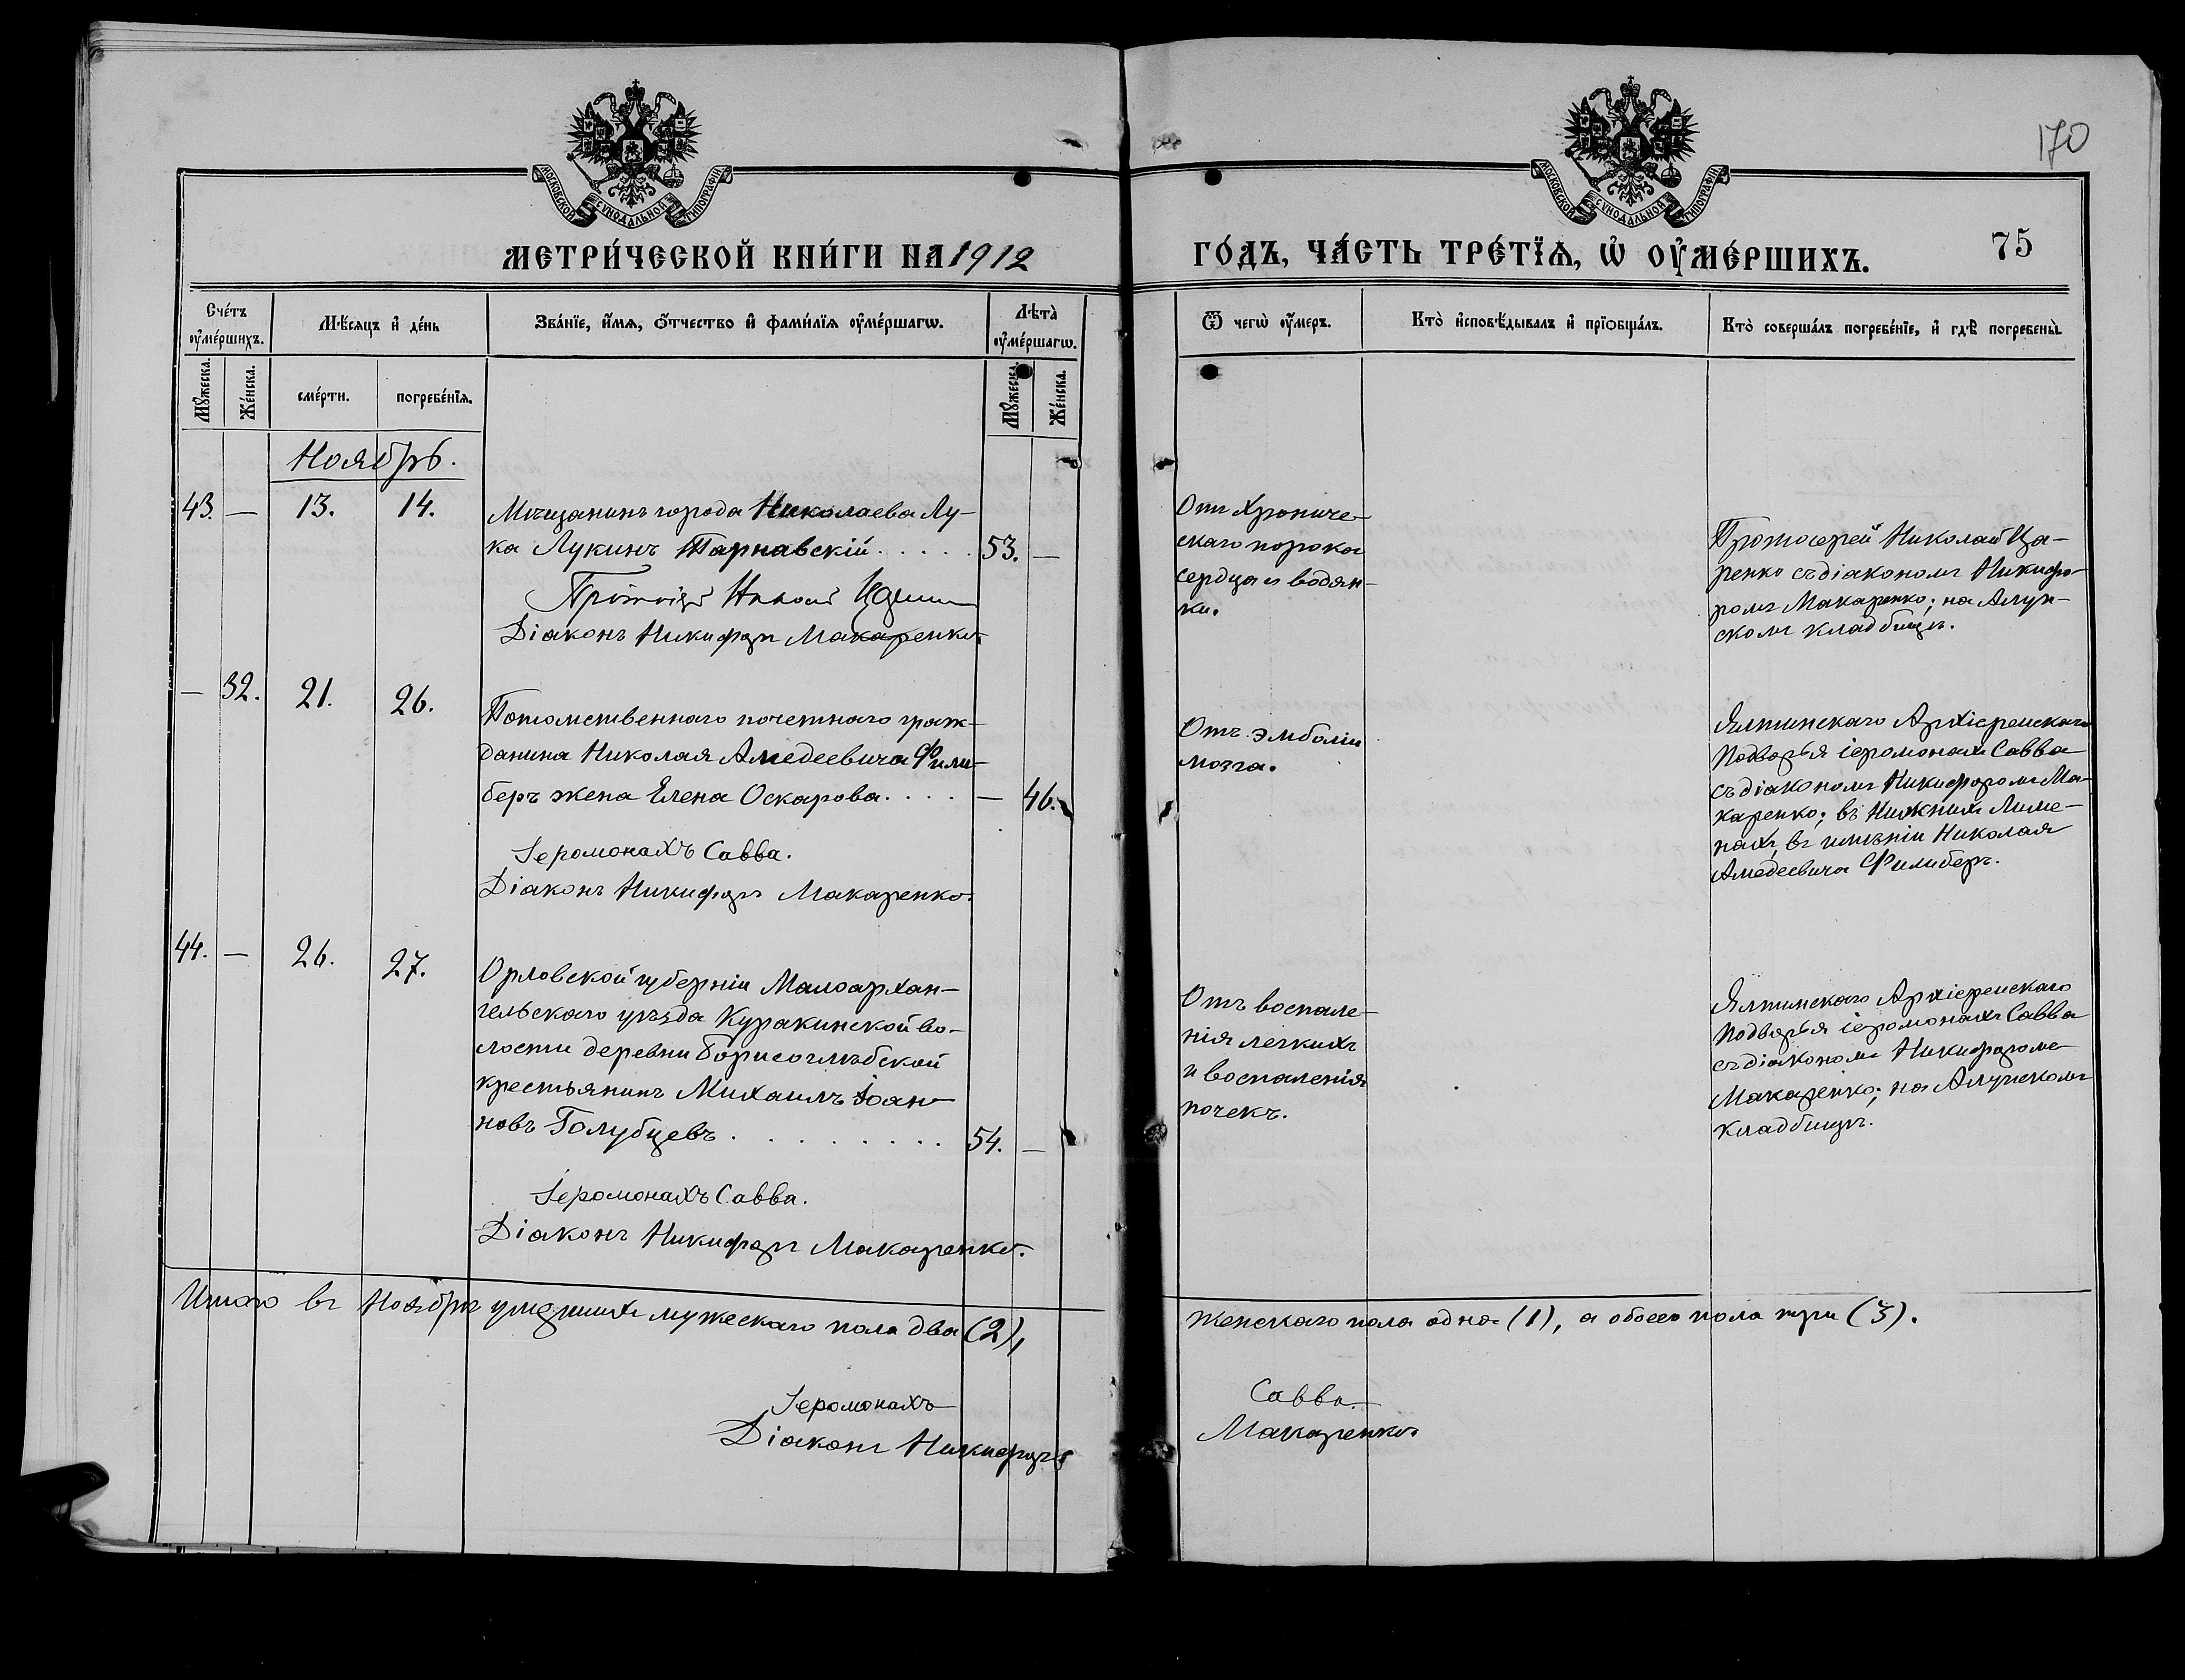 170
МОСКОВСКОЙ СѴНОДАЛЬНОЙ ТИПОГРАФІИ
МОСКОВСКОЙ СѴНОДАЛЬНОЙ ТИПОГРАФІИ
МЕТРИ́ЧЕСКОЙ КНИ́ГИ НА 1912
ГО́ДЪ, ЧА́СТЬ ТРЕ́ТЇѦ, Ѡ҆ ОУ҆МЕ́РШИХЪ.
75
Сче́тъ оу҆ме́ршихъ.
Мѣ́сяцъ и҆ де́нь
Зва́нїе, и҆́мѧ, ѻ҆́тчество и҆ фами́лїѧ оу҆ме́ршагѡ.
Лѣта̀ оу҆ме́ршагѡ.
Ѿ чегѡ̀ оу҆́меръ.
Кто̀ и҆сповѣ́дывалъ и҆ прїѻбща́лъ.
Кто̀ соверша́лъ погребе́нїе, и҆ гдѣ̀ погребены̀.
Мꙋ́жеска.
Же́нска.
сме́рти.
погребе́нїѧ.
Мꙋ́жеска.
Же́нска.
Ноябрь.
43. — 13. 14.
Мѣщанинъ города Николаева Лу-
ка Лукинъ Тарнавскій . . . . . 53. —
Діаконъ Никифоръ Макаренко.
От Хрониче-
скаго порока
сердца и водян-
ки.
Протоіерей Николай Ца-
ренко съ діакономъ Никифо-
ромъ Макаренко; на Алуп-
скомъ кладбищѣ.
— 32. 21. 26.
Потомственнаго почетнаго граж-
данина Николая Амедеевича Фили-
беръ жена Елена Оскарова . . . . — 46.
Іеромонахъ Савва.
Діаконъ Никифоръ Макаренко.
Отъ эмболіи
мозга.
Ялтинскаго Архіерейскаго
Подворья іеромонахъ Савва
съ діакономъ Никифоромъ Ма-
каренко; въ Нижнихъ Лиме-
нахъ, въ имѣніи Николая
Амедеевича Филиберъ.
44. — 26. 27.
Орловской губерніи Малоархан-
гельскаго уѣзда Куракинской во-
лости деревни Борисоглѣбской
крестьянинъ Михаилъ Іоан-
новъ Голубцевъ . . . . . . . . . 54. —
Іеромонахъ Савва.
Діаконъ Никифоръ Макаренко.
Отъ воспале-
нія легкихъ
и воспаленія
почекъ.
Ялтинскаго Архіерейскаго
Подворья іеромонахъ Савва
съ діакономъ Никифоромъ
Макаренко; на Алупскомъ
кладбищѣ.
Итого въ Ноябрѣ умершихъ мужескаго пола два (2),
женскаго пола одна (1), а обоего пола три (3).
Іеромонахъ Савва.
Діаконъ Никифоръ Макаренко